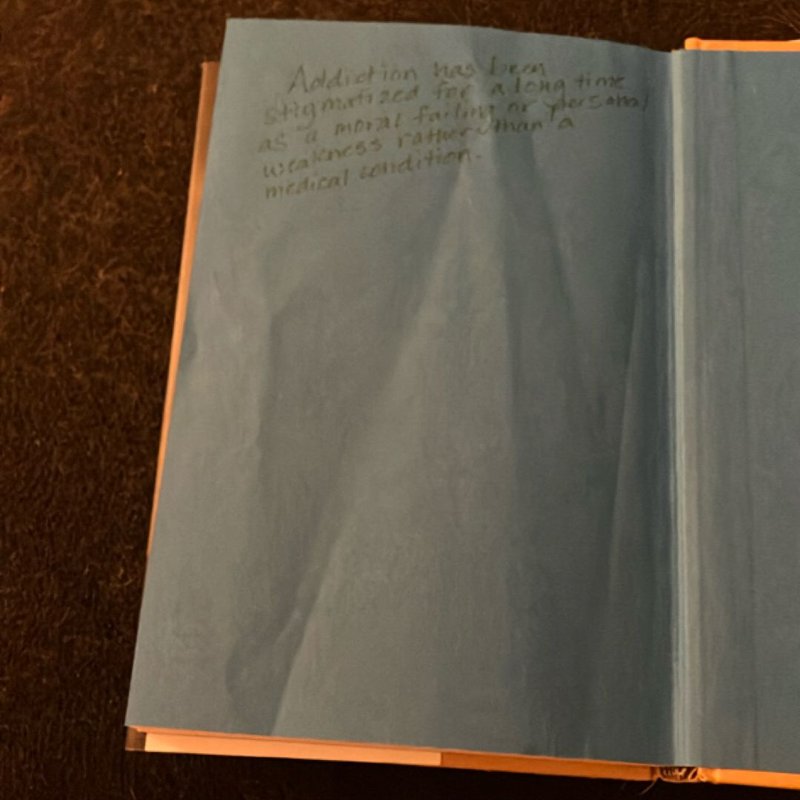 Addiction has been
stigmatized for a long time
as a moral failing or personal
weakness rather than a
medical condition.